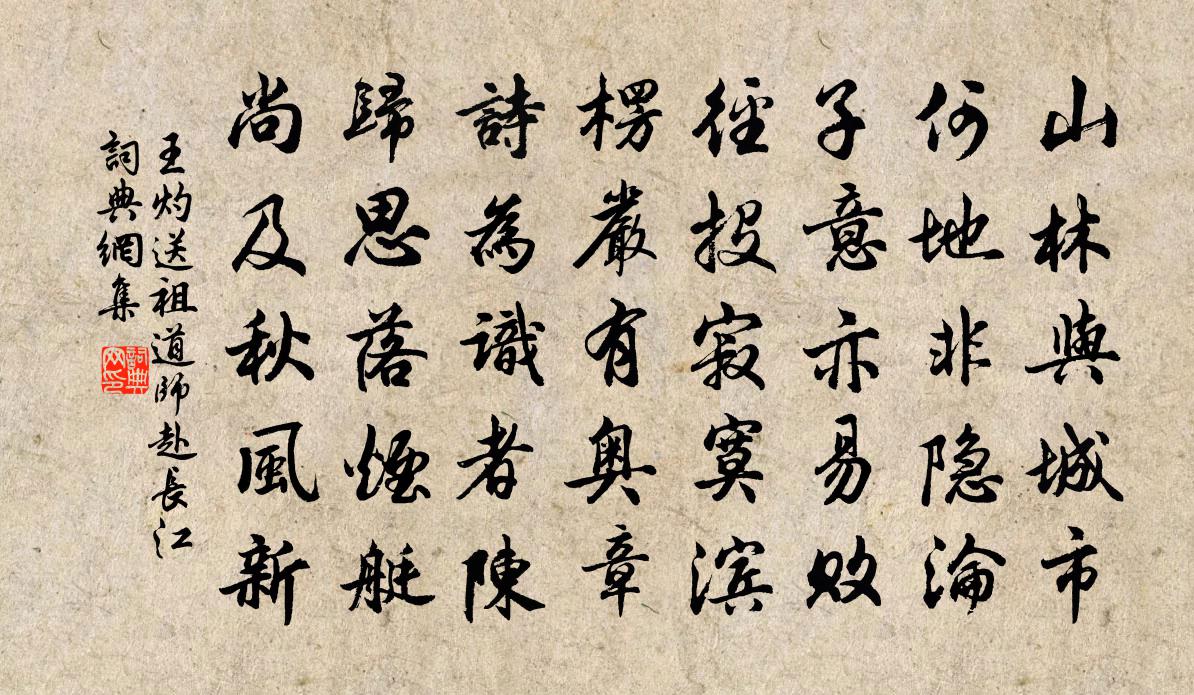 山林與城市
何地非隐淪
子意亦易败
徑投寂寞滨
楞嚴有奥章
詩為識者陳
歸思落煙艇
尚及秋風新
王灼送祖道師赴長江
詞典網集
詞典
网印